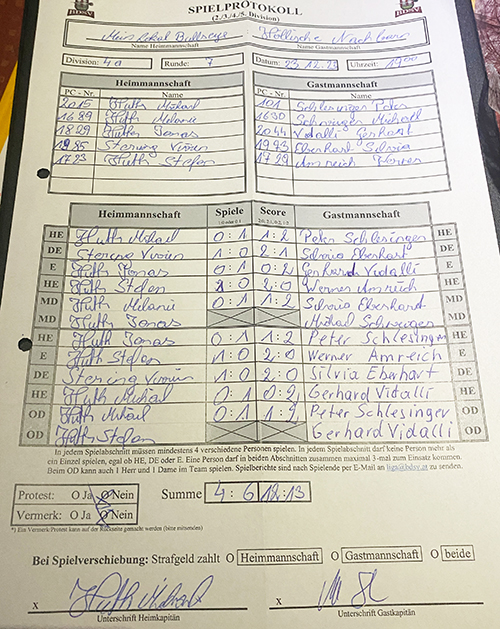 SPIELPROTOKOLL
(2./3./4./5. Division)
Höllische Nachbarn
Name Heimmannschaft Name Gastmannschaft
Division: 4a Runde: 7 Datum: 23.12.23 Uhrzeit: 19:00
Heimmannschaft Gastmannschaft
PC - Nr. Name PC - Nr. Name
2015 Huth Michael 101 Schlesinger Peter
1689 Huth Melanie 1690 Michael
1829 Huth Jonas 2044 Vidalli Gerhard
1985 Stering Vivien 1993 Eberhart Silvia
1723 Huth Stefan 1729 Amreich Werner
Heimmannschaft Spiele Score Gastmannschaft
HE Huth Michael 0:1 1:2 Peter Schlesinger HE
DE Stering Vivien 1:0 2:1 Silvia Eberhard DE
E Huth Jonas 0:1 0:2 Gerhard Vidalli E
HE Huth Stefan 1:0 2:0 Werner Amreich HE
MD Huth Melanie 0:1 1:2 Silvia Eberhard MD
MD Huth Jonas Michael MD
HE Huth Jonas 0:1 1:2 Peter Schlesinger HE
E Huth Stefan 1:0 2:0 Werner Amreich E
DE Stering Vivien 1:0 2:0 Silvia Eberhart DE
HE Huth Michael 0:1 0:2 Gerhard Vidalli HE
OD Huth Michael 0:1 1:2 Peter Schlesinger OD
OD Huth Stefan Gerhard Vidalli OD
In jedem Spielabschnitt müssen mindestens 4 verschiedene Personen spielen. In jedem Spielabschnitt darf keine Person mehr als
ein Einzel spielen, egal ob HE, DE oder E. Eine Person darf in beiden Abschnitten zusammen maximal 3-mal zum Einsatz kommen.
Beim OD kann auch 1 Herr und 1 Dame im Team spielen. Spielberichte sind nach Spielende per E-Mail an liga@bdsv.at zu senden.
Protest: O Ja O Nein Summe 4:6 12:13
Vermerk: O Ja O Nein
*) Ein Vermerk/Protest kann auf der Rückseite gemacht werden (bitte mitsenden)
Bei Spielverschiebung: Strafgeld zahlt O Heimmannschaft O Gastmannschaft O beide
x Huth Michael x
Unterschrift Heimkapitän Unterschrift Gastkapitän